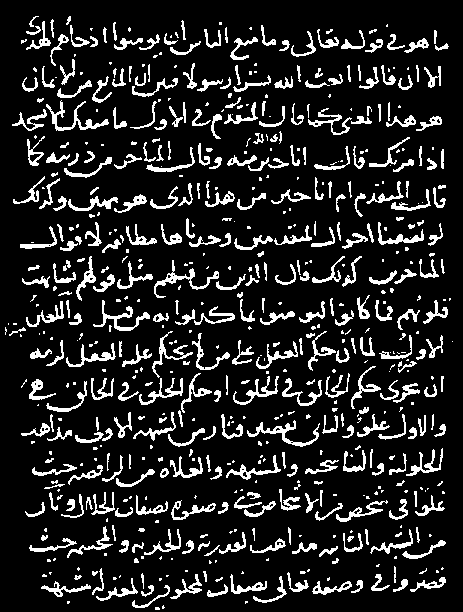 ما هو في قوله تعالى وما منع الناس ان يومنوا اذ جاهم الهدى
الا ان قالوا ابعث الله بشرا رسولا فبين ان المانع من الايمان
هو هذا المعنى كما قال المتقدم في الاول ما منعك الا تسجد
اذ امرتك قال انا خير منه وقال المتاخر من ذريته كما
قال المتقدم ام انا خير من هذا الذى هو مهين وكذلك
لو تعقبنا احوال المتقدمين وجدناها مطابقة لاقوال
المتاخرين كذلك قال الذين من قبلهم مثل قولهم تشابهت
قلوبهم فما كانوا ليومنوا بما كذبوا به من قبل واللعين
الاول لما ان حكم العقل على من لا يحتكم عليه العقل لزمه
ان يجرى حكم الخالق في الخلق او حكم الخلق في الخالق
والاول غلو والثانى تقصير فثار من الشبهة الاولى مذاهب
الحلولية والتناسخية والمشبهة والغلاة من الرافضة حيث
غلوا فى شخص من الاشخاص حتى وصفوه بصفات الجلال وثار
من الشبهة الثانية مذاهب القدرية والجبرية والمجسمة حيث
قصروا في وصفه تعالى بصفات المخلوقين والمعتزلة مشبهة